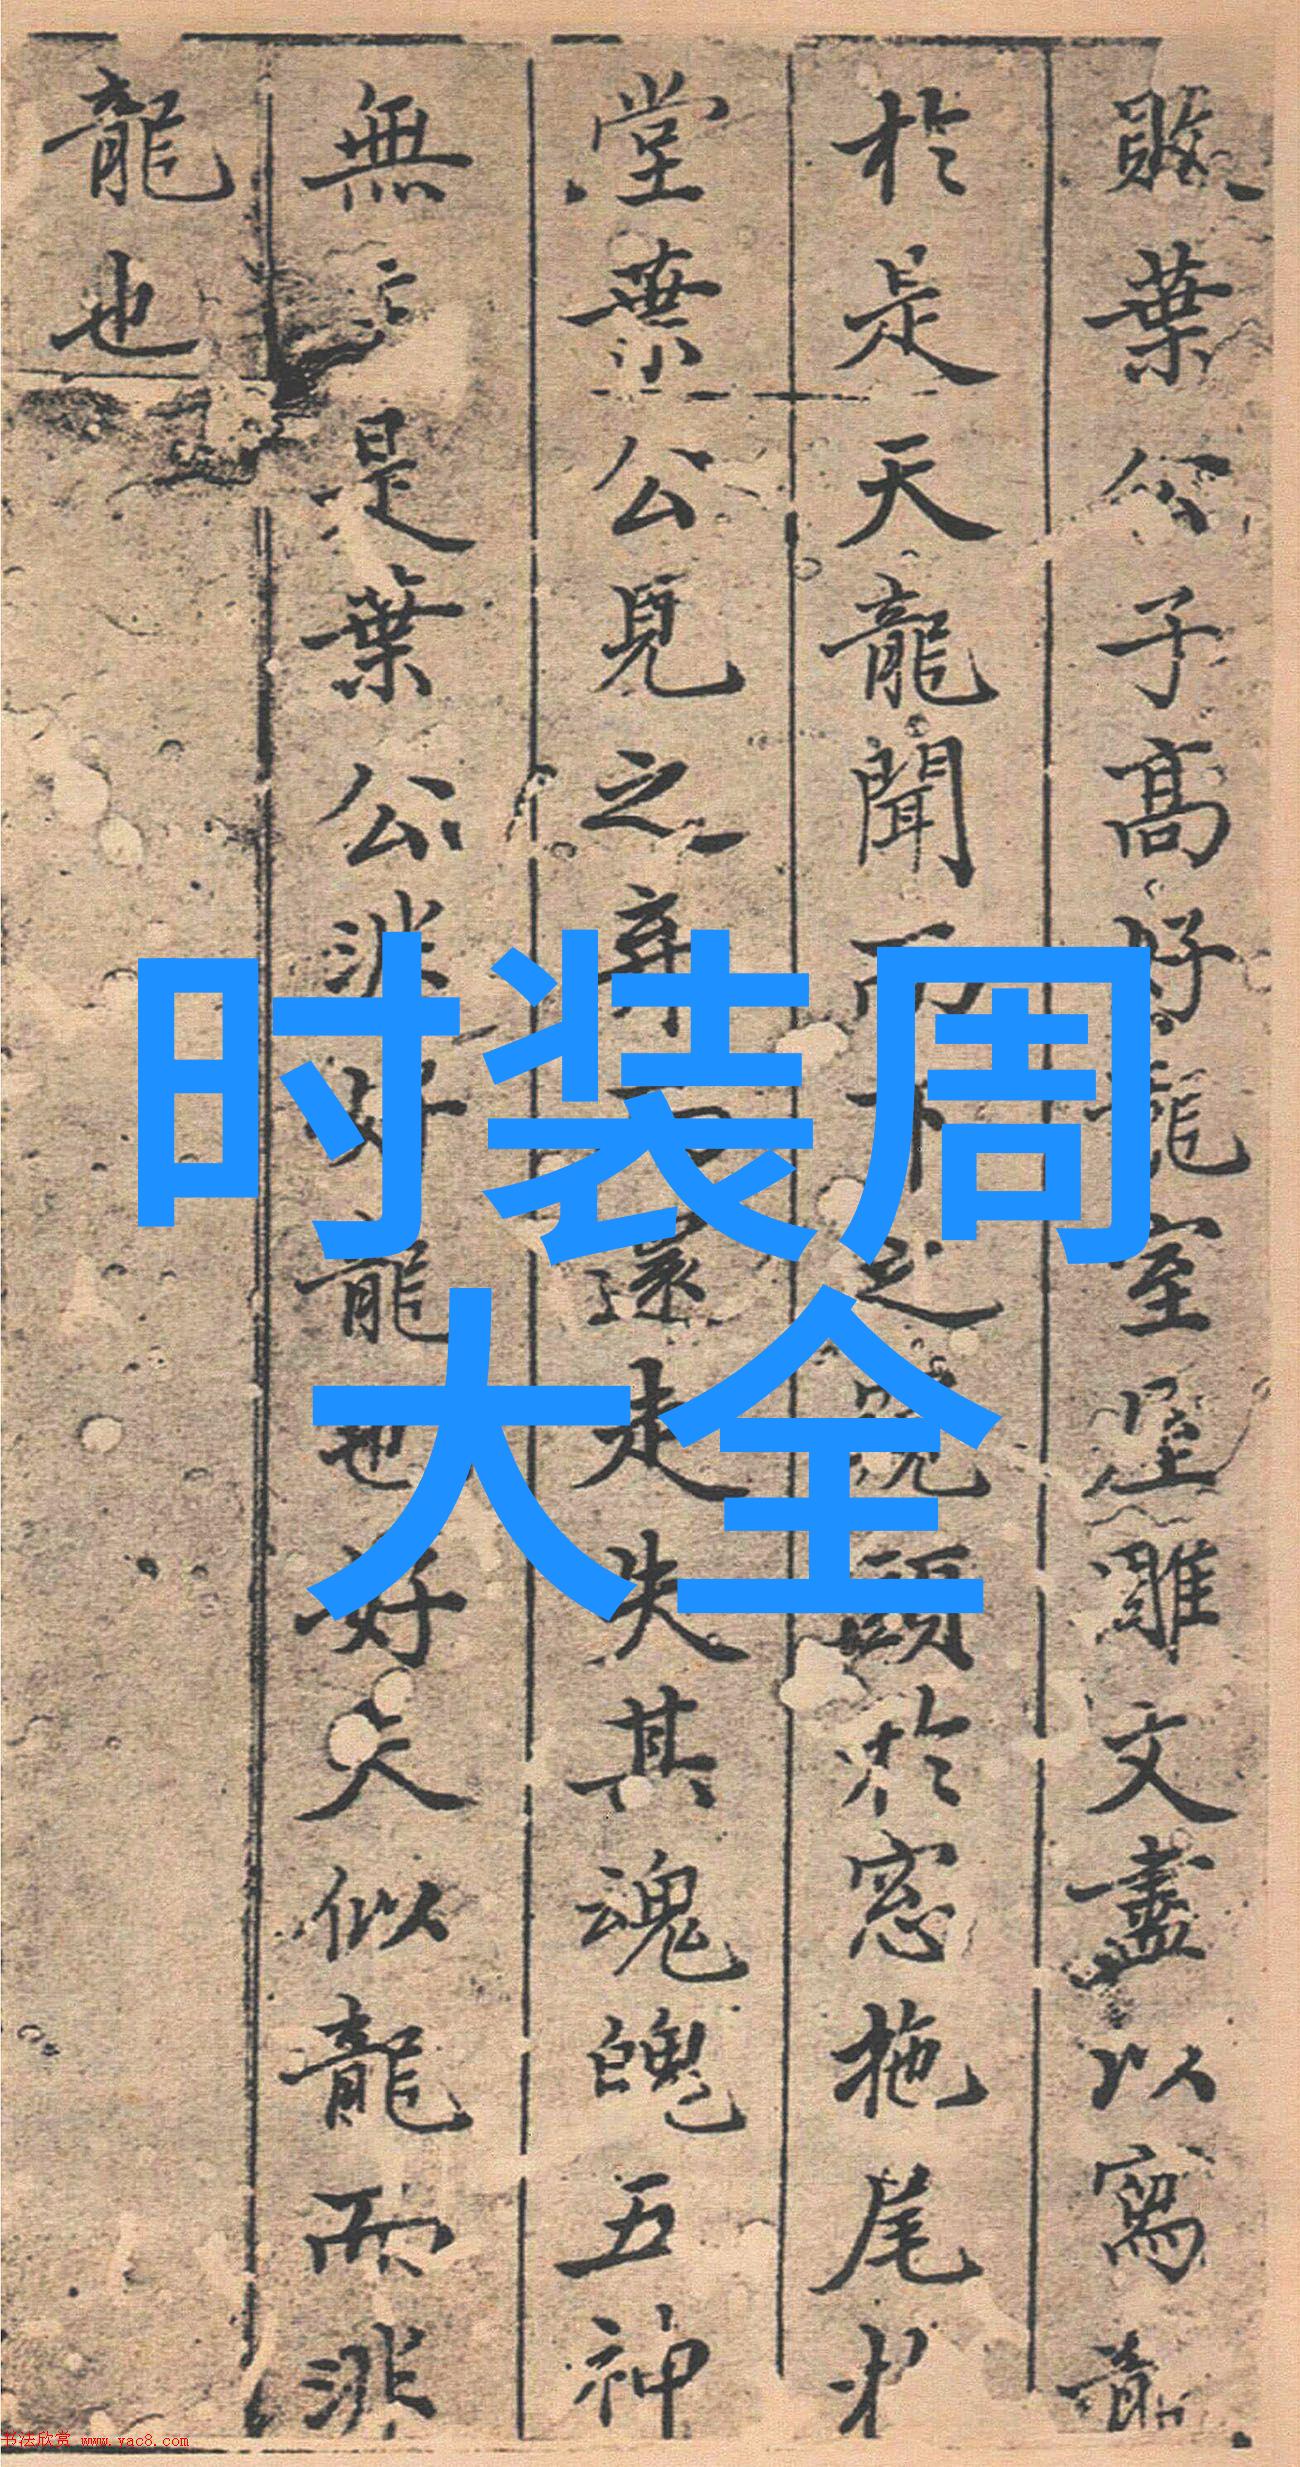 敗葉公子高好龍室屋雕文盡以寫龍
於是天龍聞而下之窺頭於窓拖尾於
堂葉公見之棄而還走失其魂魄五神
無主是葉公非好龍也好夫似龍而非
龍也
时装周
大全
书法欣赏 www.yac8.com